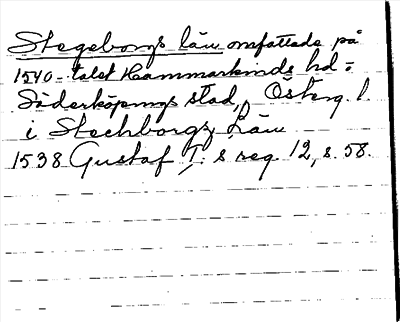 Stegeborgs län omfattade på
1540-talet Hammarkinds hd =
Söderköpings stad, Österg. l.
i Stechborgz Län
1538 Gustaf I: s reg. 12, s. 58.